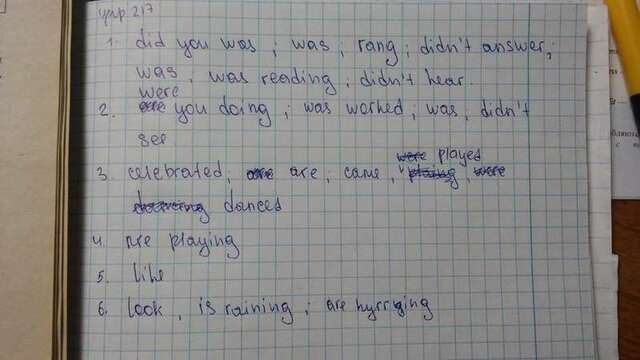 упр. 217
1. did you was ; was ; rang ; didn't answer,;
was , was reading ; didn't hear.
were
2. you doing ; was worked ; was ; didn't
see
were played
3. celebrated ; are ; came , , were
dances
4. are playing
5. like
6. look , is raining ; are hyrrying